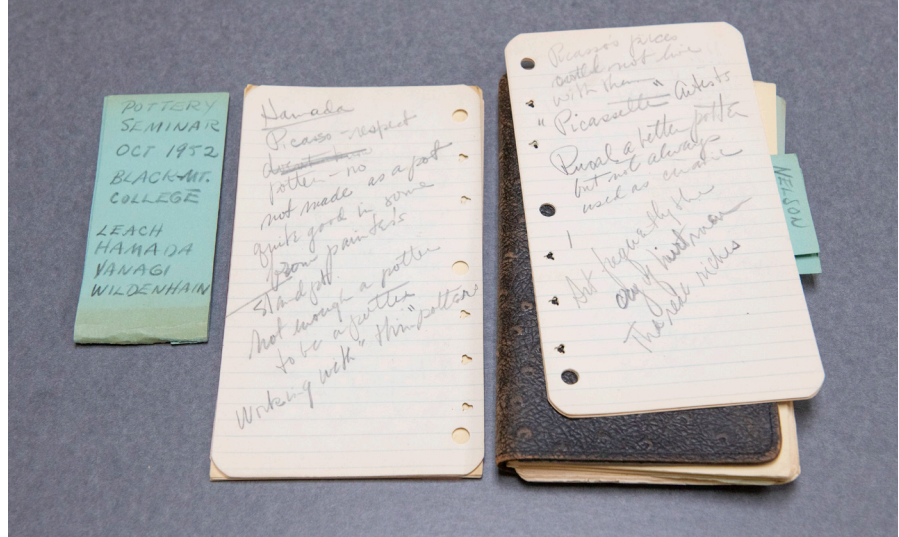 POTTERY
SEMINAR
OCT 1952
BLACK MT.
COLLEGE
LEACH
HAMADA
YANAGI
WILDENHAIN
Hamada
Picasso - respect
potter - no
not made as a pot
quite good in some
from painter's
standpt.
Not enough a potter
to be a potter
Working with "thin" potters
Picasso's pieces
could not live
with them
"Picassette" Artists
a better potter
but not always
used as ceramic
Art frequently the
cry of hurt man
The real riches
NELSON